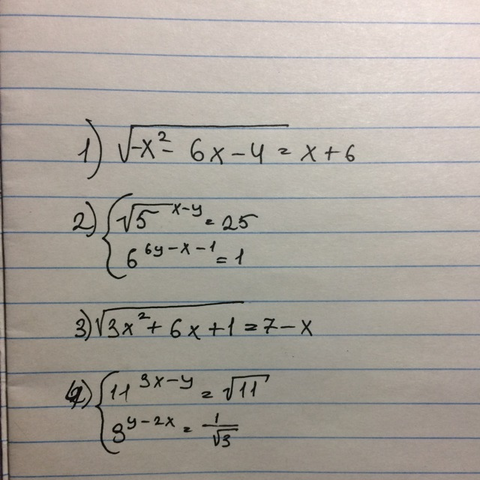 1) √-x²- 6x-4 = x+6
2) { √5^x-y = 25
6^6y-x-1 = 1
3) √3x²+6x+1 = 7-x
4) { 11^3x-y = √11
3^y-2x = 1/√3